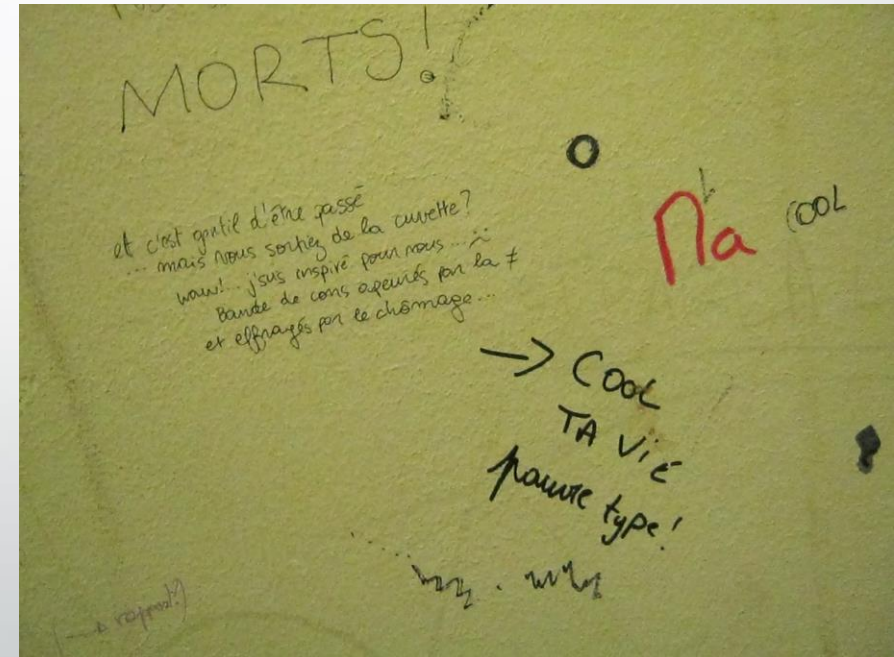 MORTS!
et c'est gentil d'être passé
... mais vous sortiez de la cuvette?
waw!.. j'suis inspiré pour vous...
Bande de cons apeurés par la ≠
et effrayés par le chômage...
Na
COOL
→ COOL
TA ViE
pauvre type!